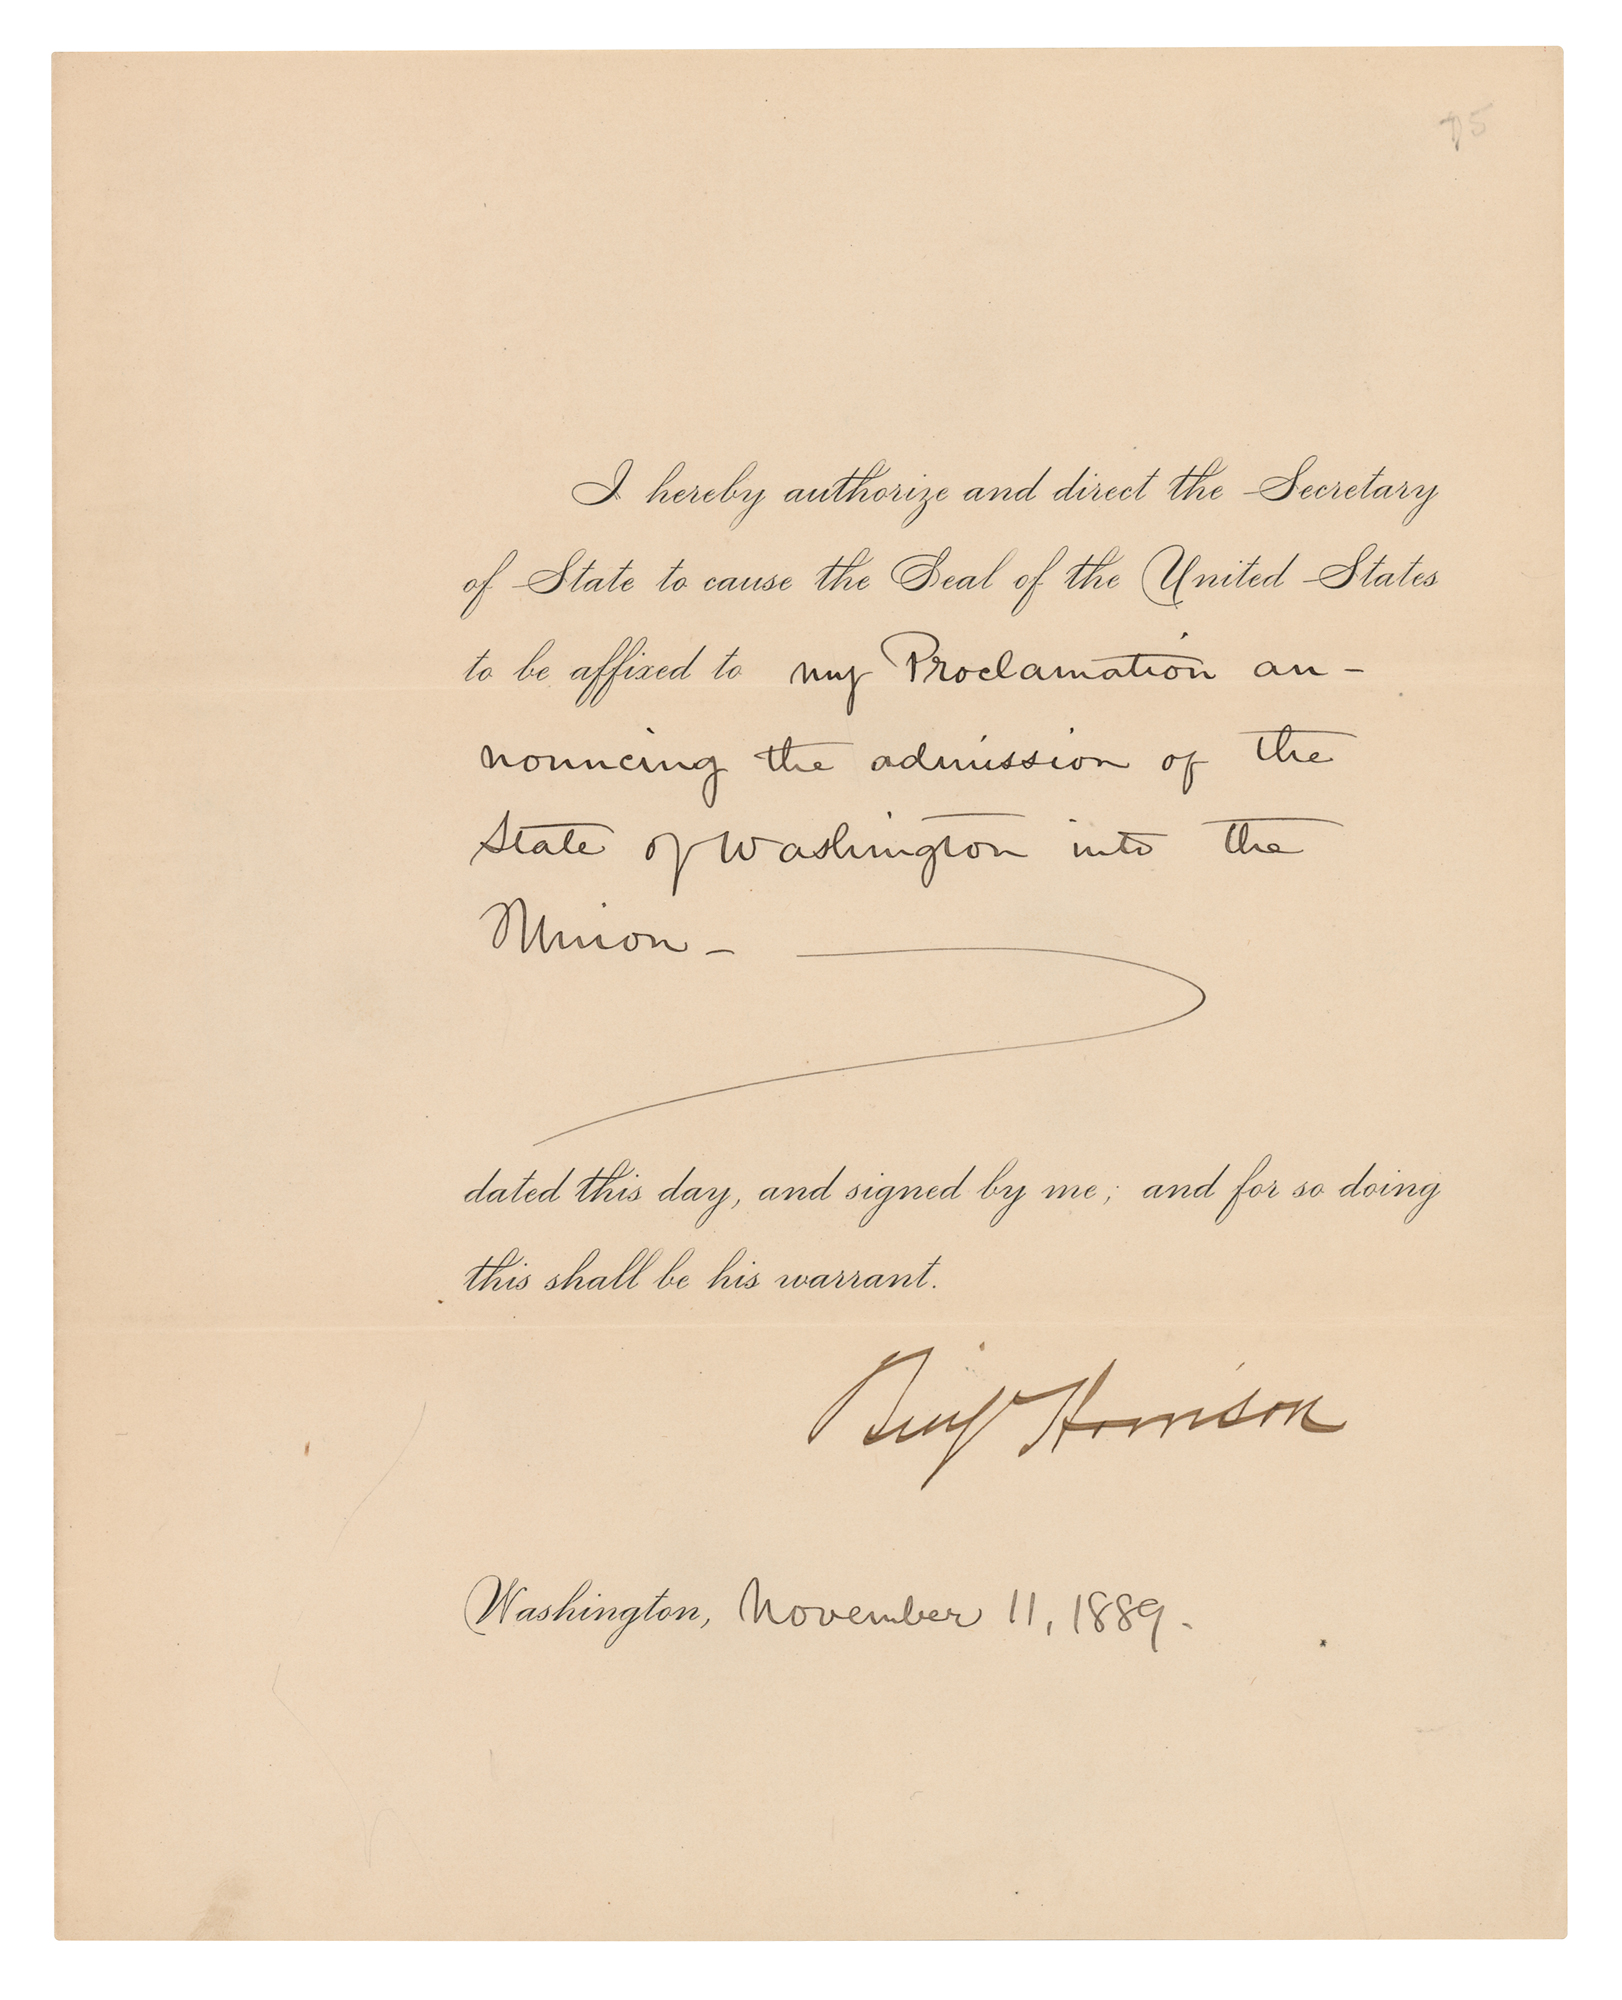 I hereby authorize and direct the Secretary
of State to cause the Seal of the United States
to be affixed to my Proclamation an-
nouncing the admission of the
State of Washington into the
Union -
dated this day, and signed by me; and for so doing
this shall be his warrant.
Benj Harrison
Washington, November 11, 1889.